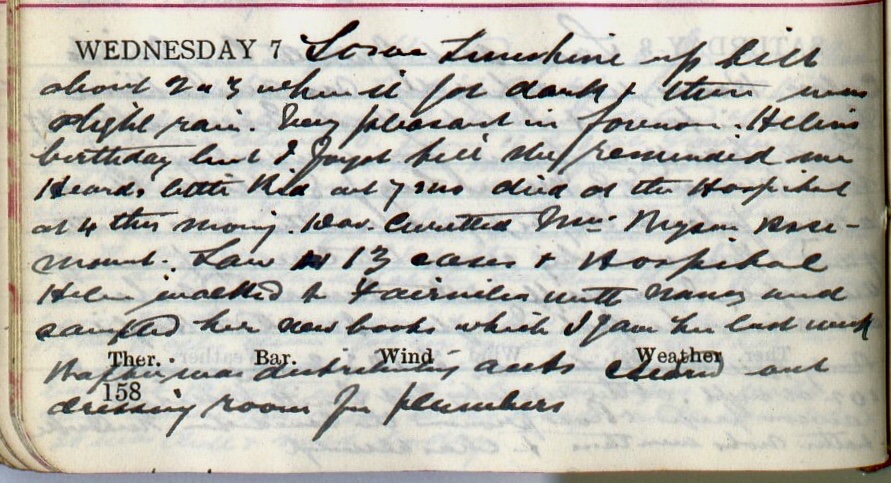 WEDNESDAY 7 Some Sunshine up till
about 2 or 3 when it got dark & there was
slight rain. Very pleasant in forenoon. Helen's
birthday but I forgot till she reminded me
Heards little Kid at 7 mo died at the Hospital
at 4 this morning. Curetted Mrs. Bryson Rose-
mount. Saw 13 cases & Hospital
Helen walked to with Nancy and
sampled her new books which I gave her last week
Ther. Bar. Wind Weather
was distributing accts out
158
dressing room for plumbers